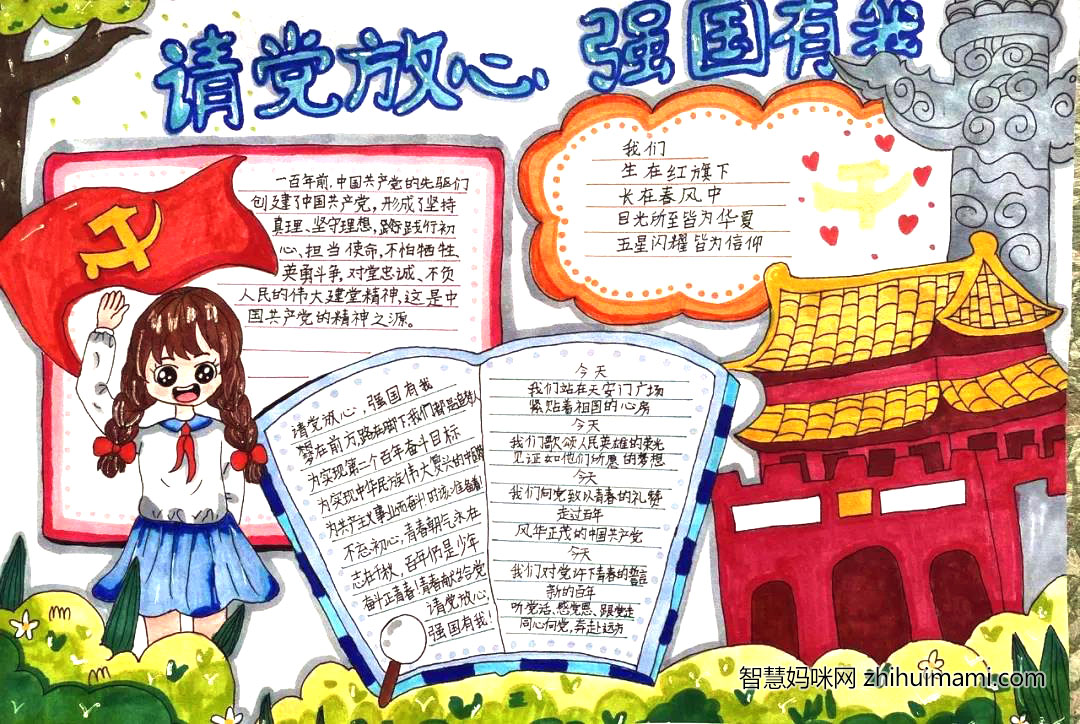 请党放心 强国有我
一百年前,中国共产党的先驱们
创建了中国共产党,形成了坚持
真理、坚守理想,践行初
心、担当使命,不怕牺牲、
英勇斗争,对党忠诚、不负
人民的伟大建党精神,这是中
国共产党的精神之源。
我们
生在红旗下
长在春风中
目光所至皆为华夏
五星闪耀皆为信仰
请党放心,强国有我
擎在前方,路在脚下,我们都是追梦人
为实现第二个百年奋斗目标
为实现中华民族伟大复兴的中国梦
为共产主义事业而奋斗
不忘初心,青春朝气永在
志在千秋,百年仍是少年
奋斗正青春!青春献给党
请党放心
强国有我!
今天
我们站在天安门广场
紧贴着祖国的心房
今天
我们歌颂人民英雄的荣光
见证如他们所愿的梦想
今天
我们向党致以青春的礼赞
走过百年
风华正茂的中国共产党
今天
我们对党许下青春的誓言
新的百年
听党话、感党恩、跟党走
同心向党,奔赴远方
智慧妈咪网 zhihuimami.com